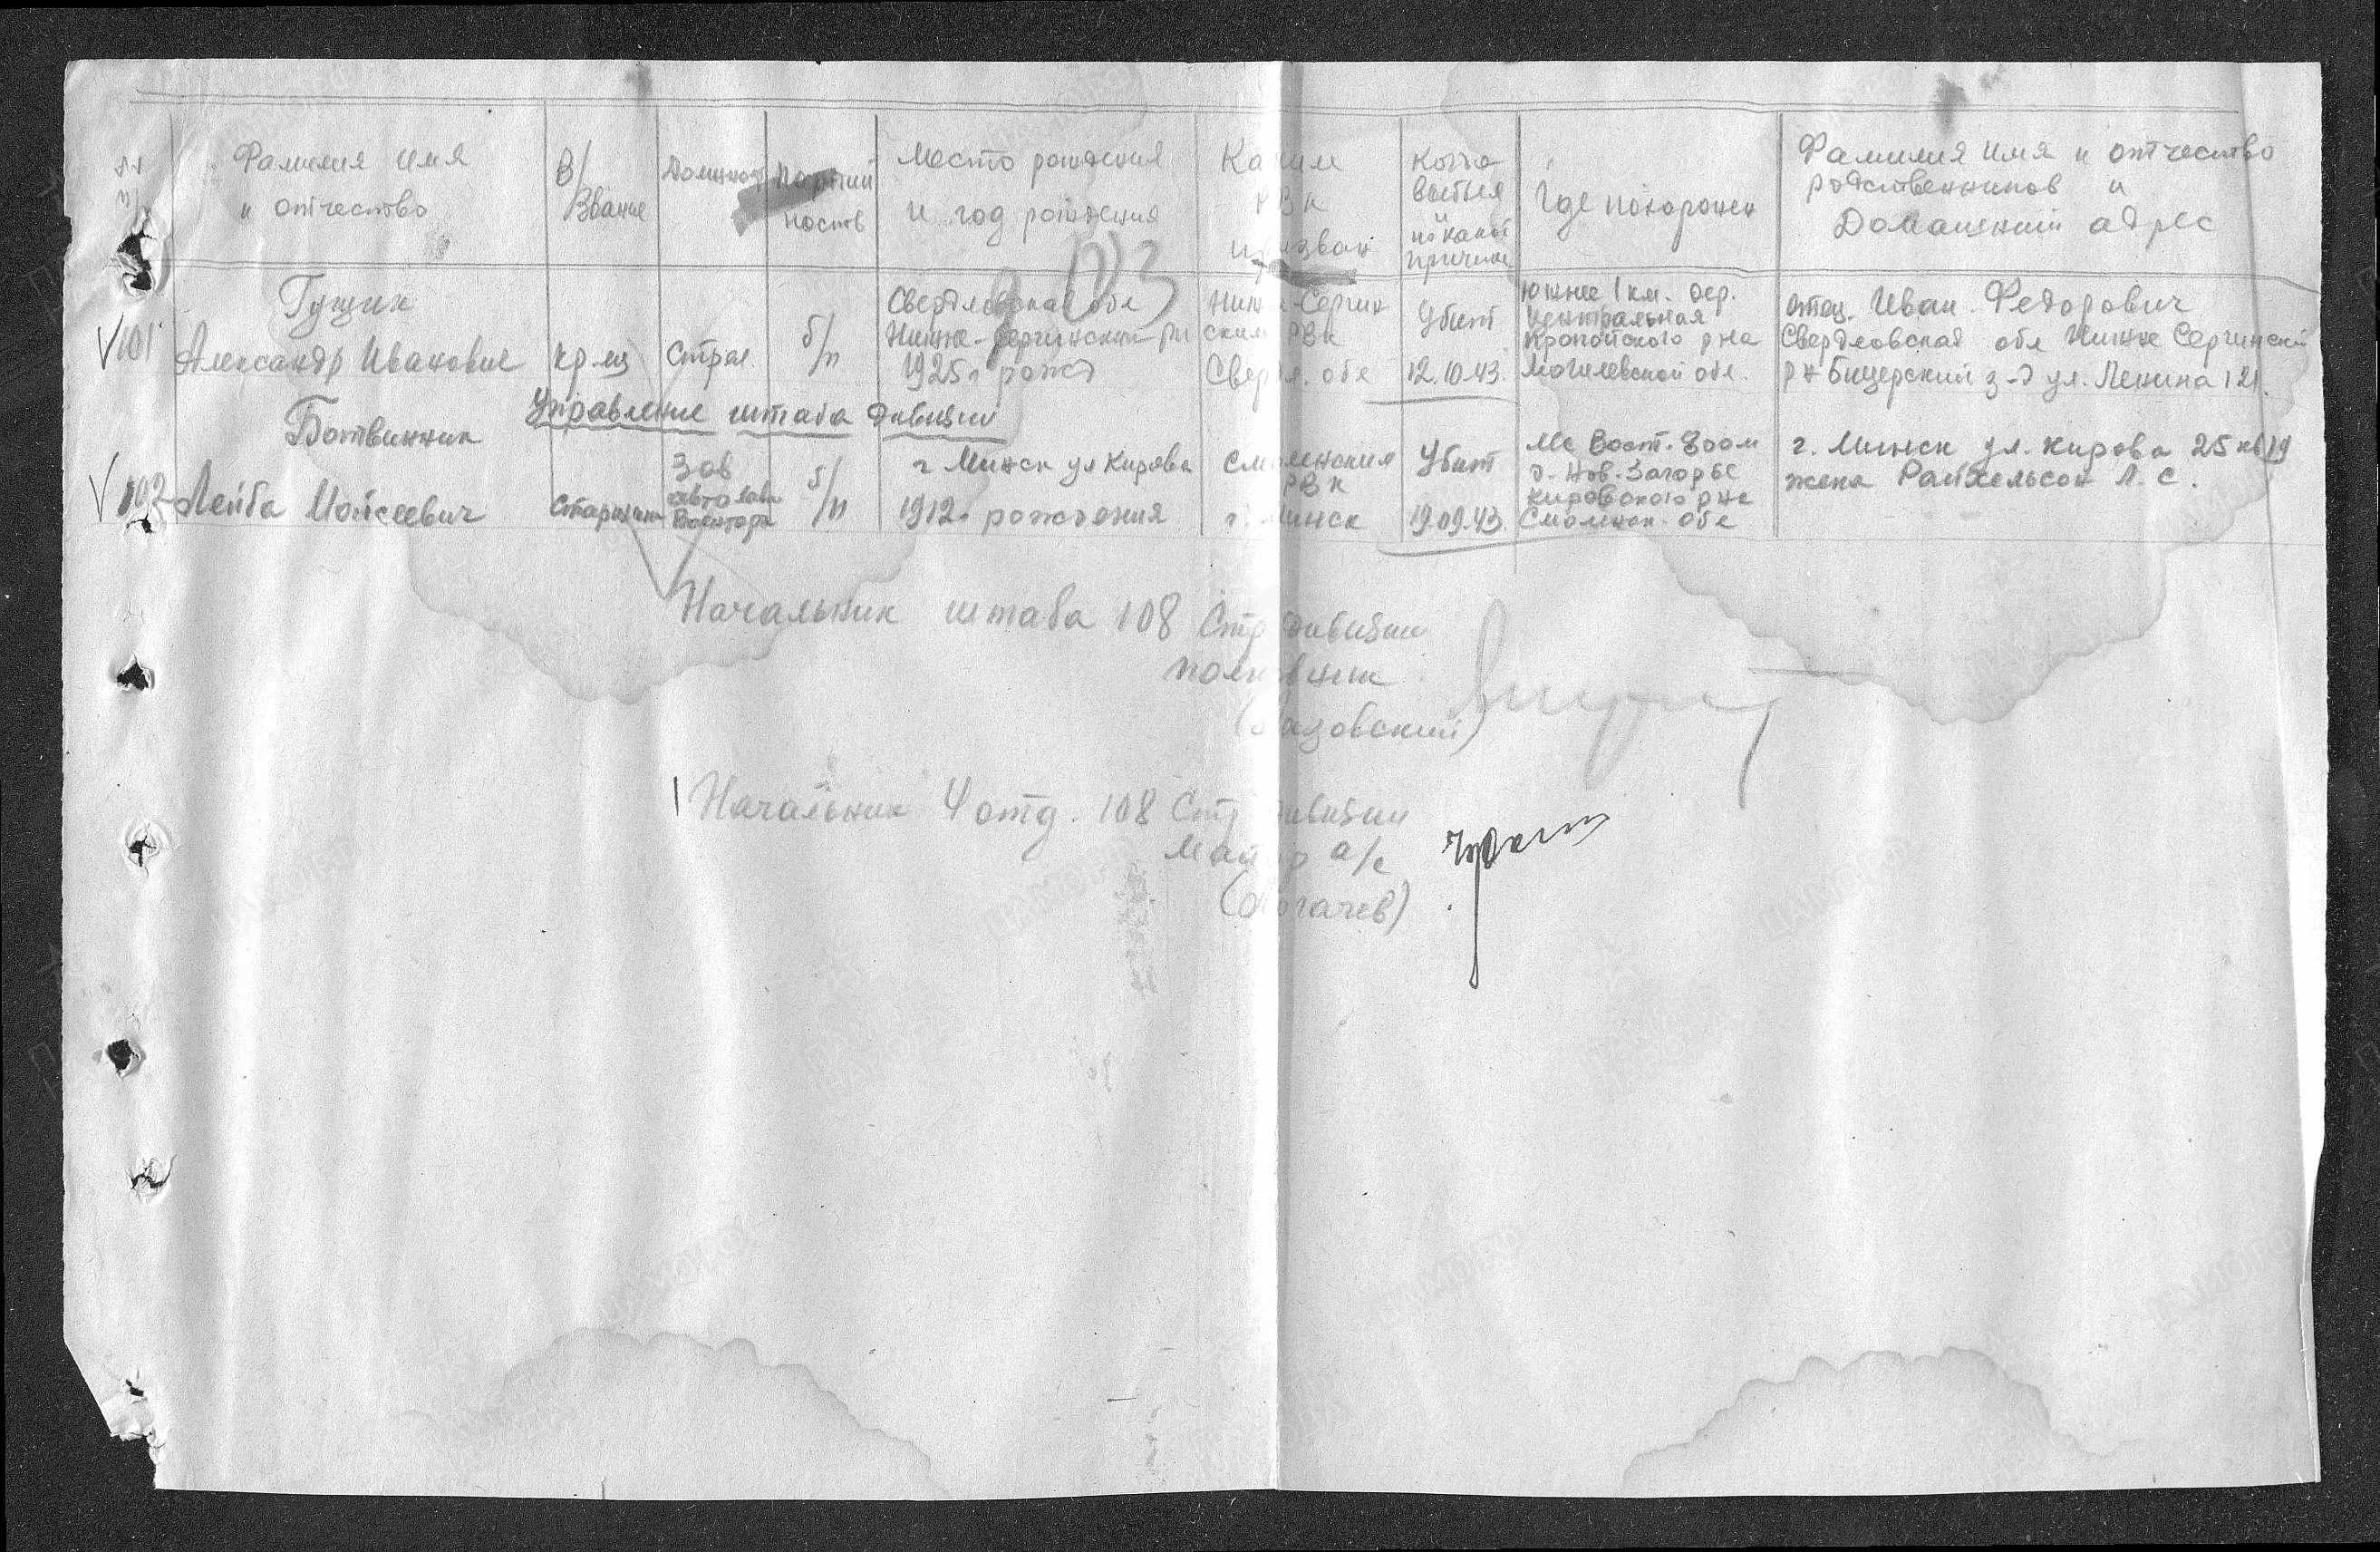 Фамилия имя
и отчество
В/
Звание
Должност
Партий
ность
Место рождения
и год рождения
Каким
РВК
призван
Когда
выбыл
по какой
причине
Где похоронен
Фамилия имя и отчество
родственников и
Домашний адрес
101
Гущин
Александр Иванович
кр-ец
Стрел.
б/п
Свердловская обл
Нижне-Сергинский рн
1925г рожд
Нижн-Сергин
ским РВК
Сверд. обл
Убит
12.10.43.
южнее 1 км. дер.
Центральная
Кропойского р-на
Могилевской обл.
отец. Иван Федорович
Свердловская обл Нижне Сергинский
р-н Бисерский з-д ул. Ленина 121.
Управление штаба дивизии
102
Ботвинник
Лейба Мойсеевич
Старшина
Зав
автолав
Военторг
б/п
г Минск ул Кирова
1912г рождения
Смоленским
РВК
г. Минск
Убит
19.09.43.
Вост. 800м
д. Нов. Загорье
Кировского р-на
Смоленск. обл
г. Минск ул. Кирова 25 кв 19
жена Райхельсон Л. С.
Начальник штаба 108 Стр дивизии
полковник
Начальник 4 отд. 108 Стр дивизии
Майор а/с